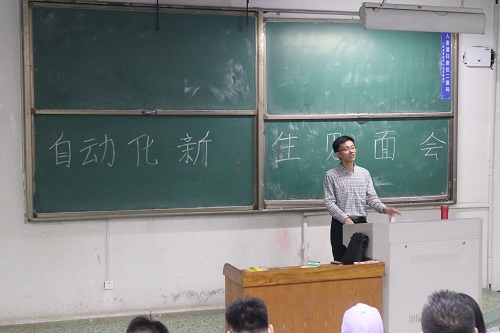 自动化新生见面会